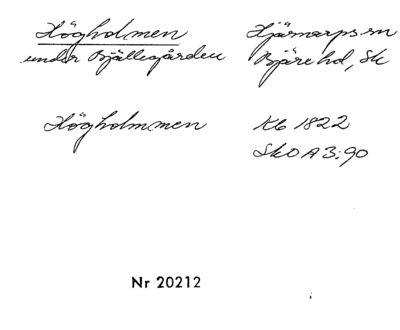 Högholmen Hjärnarps sn
under Bjällegården Bjäre hd, Sk
Högholmmen Kb 1822
SkO A 3:90
Nr 20212